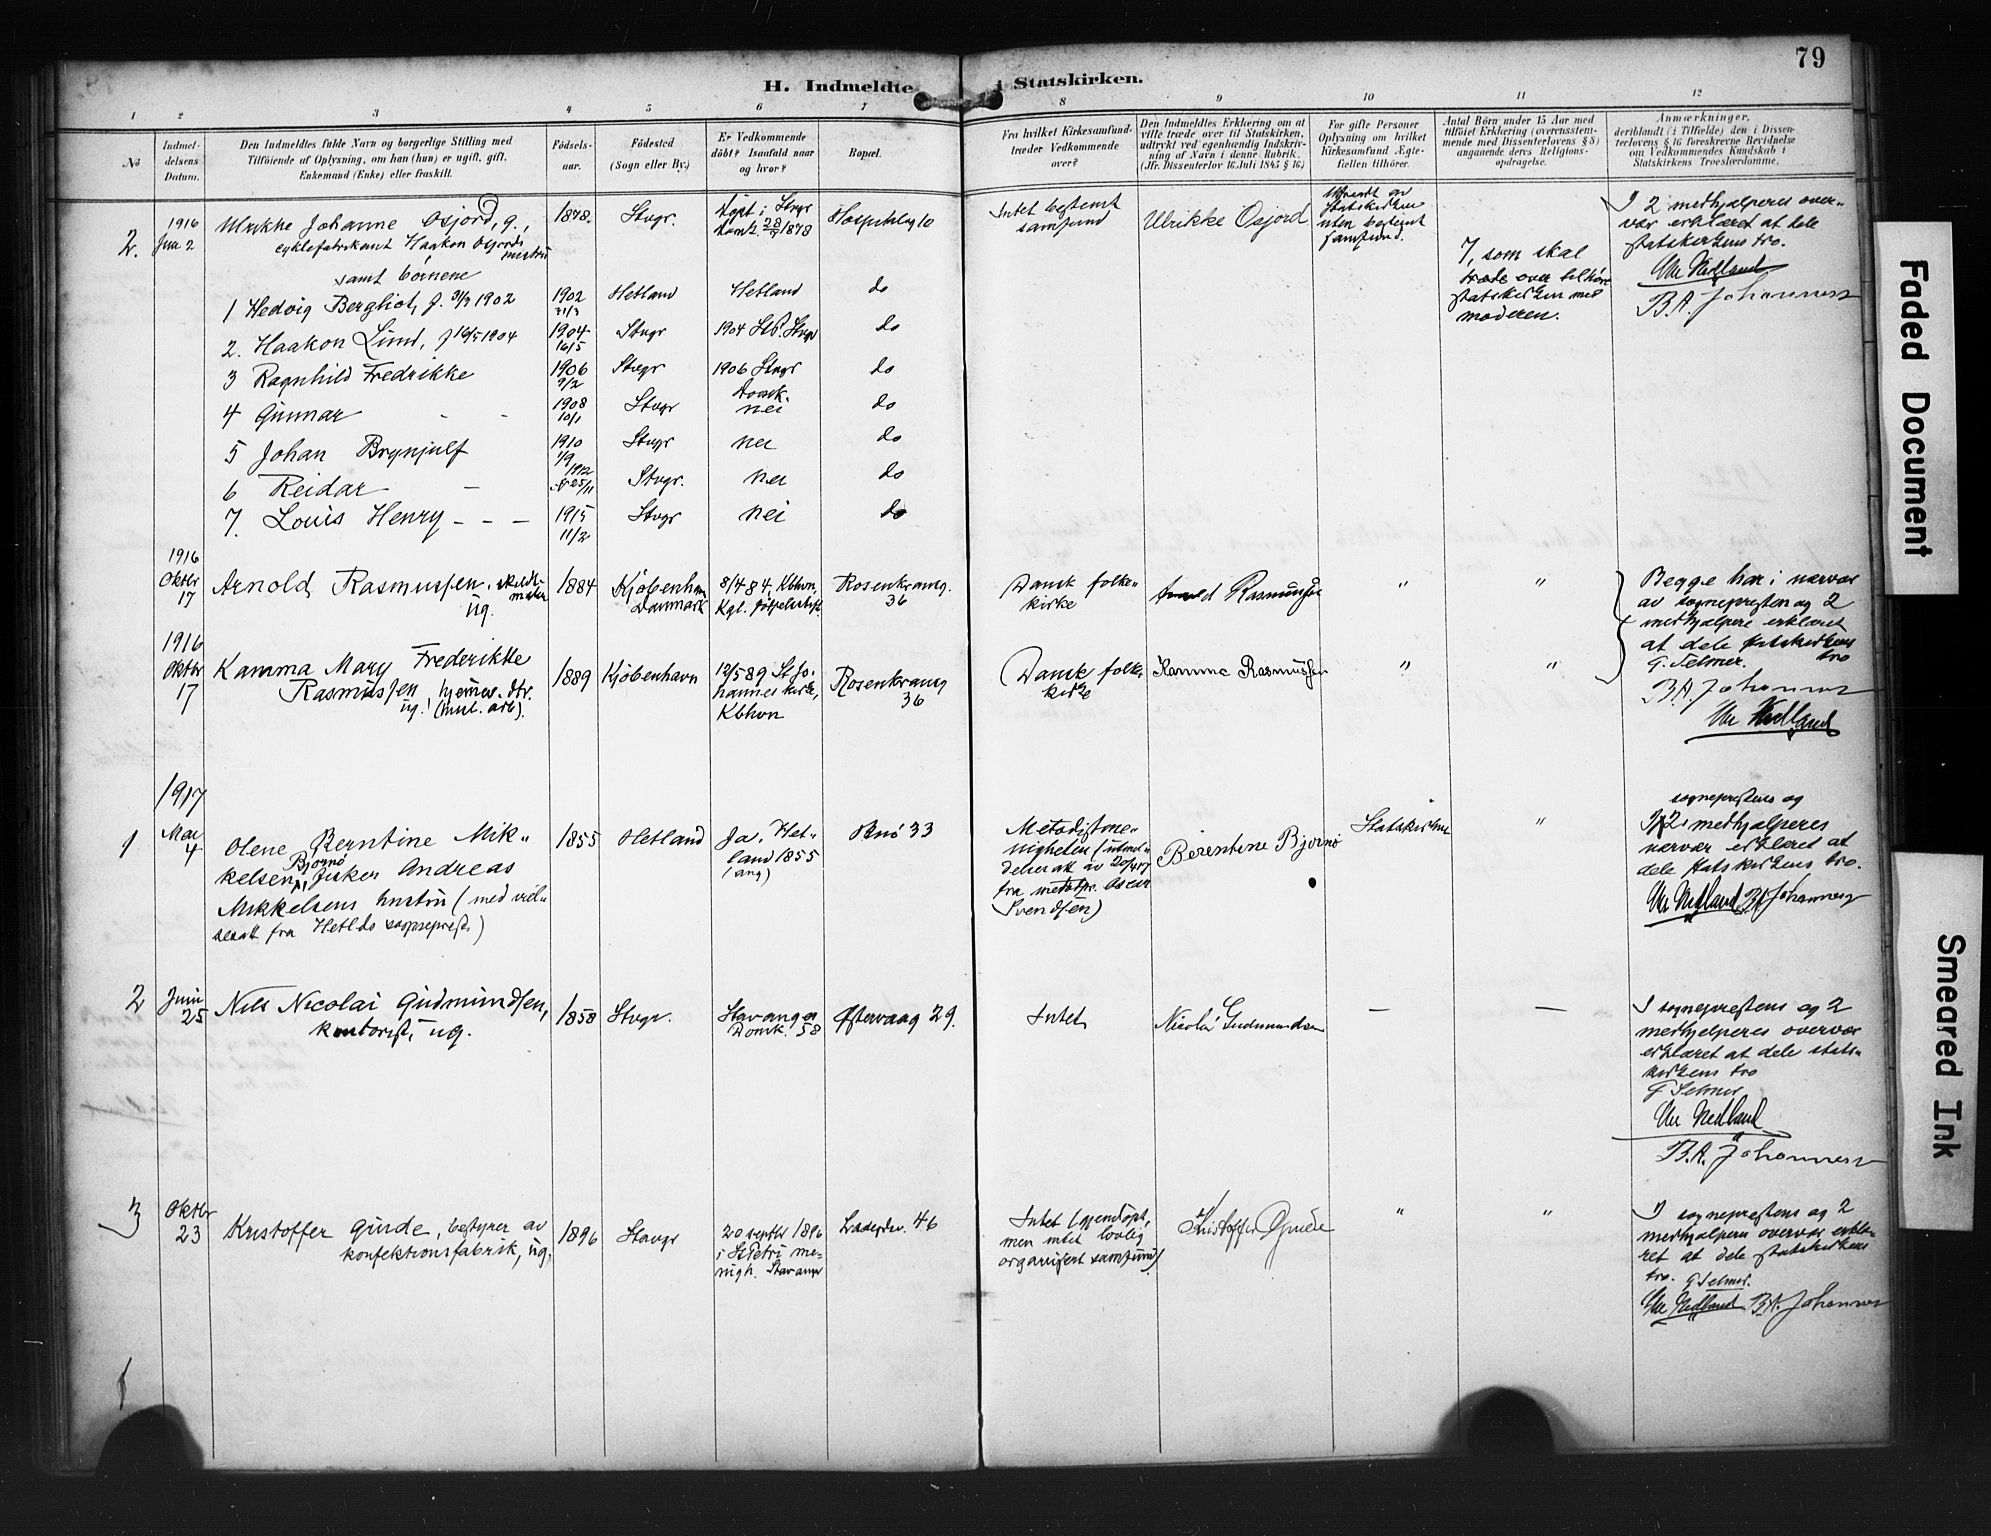 79
H. Indmeldte i Statskirken.
1 2 3 4 5 6 7 8 9 10 11 12
No
Indmel-
delsens
Datum.
Den Indmeldtes fulde Navn og borgerlige Stilling med
Tilföiende af Oplysning, om han (hun) er ugift, gift,
Enkemand (Enke) eller fraskilt.
Födsels-
aar.
Födested
(Sogn eller By.)
Er Vedkommende
döbt? Isaafald naar
og hvor?
Bopæl.
Fra hvilket Kirkesamfund
træder Vedkommende
over?
Den Indmeldtes Erklæring om at
ville træde over til Statskirken,
udtrykt ved egenhændig Indskriv-
ning af Navn i denne Rubrik.
(Jfr. Dissenterlov 16 Juli 1845 § 16)
For gifte Personer
Oplysning om hvilket
Kirkesamfund Ægte-
fællen tilhörer.
Antal Börn under 15 Aar med
tilföiet Erklæring (overensstem-
mende med Dissenterlovens § 8)
angaaende deres Religions-
opdragelse.
Anmærkninger,
deriblandt (i Tilfælde) den i Dissen-
terlovens § 16 foreskrevne Bevidnelse
om Vedkommendes Kundskab i
Statskirkens Troeslærdomme.
2.
1916
Juni 2
Ulrikke Johanne Osjord, g.,
cyklefabrikant Haakon Osjords
hustru
samt börnene
1878
Stvgr.
Döpt i Stvgr
Domk. 1878
Hospitalsg 10
Intet bestemt
samfund
Ulrikke Osjord
Statskirken
uten bestemt
samfund.
7, som skal
træde over til
statskirken med
moderen.
I 2 medhjælperes over-
vær erklæret at dele
statskirkens tro.
Nedland
B.A. Johannesen
1 Hedvig Bergliot, f. 31/3 1902 1902 31/3 Hetland Hetland do
2. Haakon Lund, f 16/5 1904 1904 16/5 Stvgr 1904 Stvgr do
3 Ragnhild Fredrikke 1906 9/2 Stvgr 1906 Stvgr Domk. do
4 Gunnar 1908 10/1 Stvgr nei do
5 Johan Brynjulf 1910 1/9 Stvgr nei do
6 Reidar 1912 25/11 Stvgr. nei do
7. Louis Henry 1915 11/2 Stvgr nei do
1916
Oktbr
17
Arnold Rasmussen,
ug.
1884
Kjöbenhavn
Danmark
8/4 84, Kbhvn,
Kgl.
Rosenkransg.
36
Dansk folke-
kirke
Arnold Rasmussen
" "
Begge har i nærvær
av sognepresten og 2
medhjælpere erklæret
at dele statskirkens
tro
G. Selmer.
B.A. Johannesen
Nedland
1916
Oktbr
17
Kamma Mary Frederikke
Rasmussen, hjemmev. dtr.
ug.
1889
Kjöbenhavn
12/5 89 St Jo-
hannes kirke,
Kbhvn
Rosenkransg
36
Dansk folke-
kirke
Kamma Rasmussen
" "
1917
1
Mai
4
Olene Berntine Mik-
kelsen Bjornö, fisker Andreas
Mikkelsens hustru (med viel-
sesatt fra Hetlds sogneprest)
1855
Hetland
Ja. Het-
land 1855
(ang)
33
Metodistme-
nigheten (utmel-
delsesatt av 20/4 17
fra metodpr. Oscar
Svendsen)
Berentine Bjornö
Statskirken
"
I sogneprestens og
2 medhjælperes
nærvær erklæret at
dele statskirkens tro.
Nedland B.A. Johannesen
2
Juni
25
Nils Nicolai Gudmundsen,
kontorist, ug.
1858
Stvgr.
Stavanger
Domk. 58
Østervaag 29.
Intet
Nicolai Gudmundsen
— —
I sogneprestens og 2
medhjælperes overvær
erklæret at dele stats-
kirkens tro
G Selmer
Nedland
B.A. Johannesen
3
Oktbr
23
Kristoffer Gude, bestyrer av
konfektionsfabrik, ug.
1896
Stavgr
20 septbr 1896
i St Petri me-
nigh. Stavanger
46
Intet (gjendöpt,
men intet lovlig
organisert samfund)
Kristoffer Gude
" "
I sogneprestens og 2
medhjælperes overvær erklæ-
ret at dele statskirkens
tro. G Selmer.
Nedland B.A. Johannesen
Faded Document
Smeared Ink